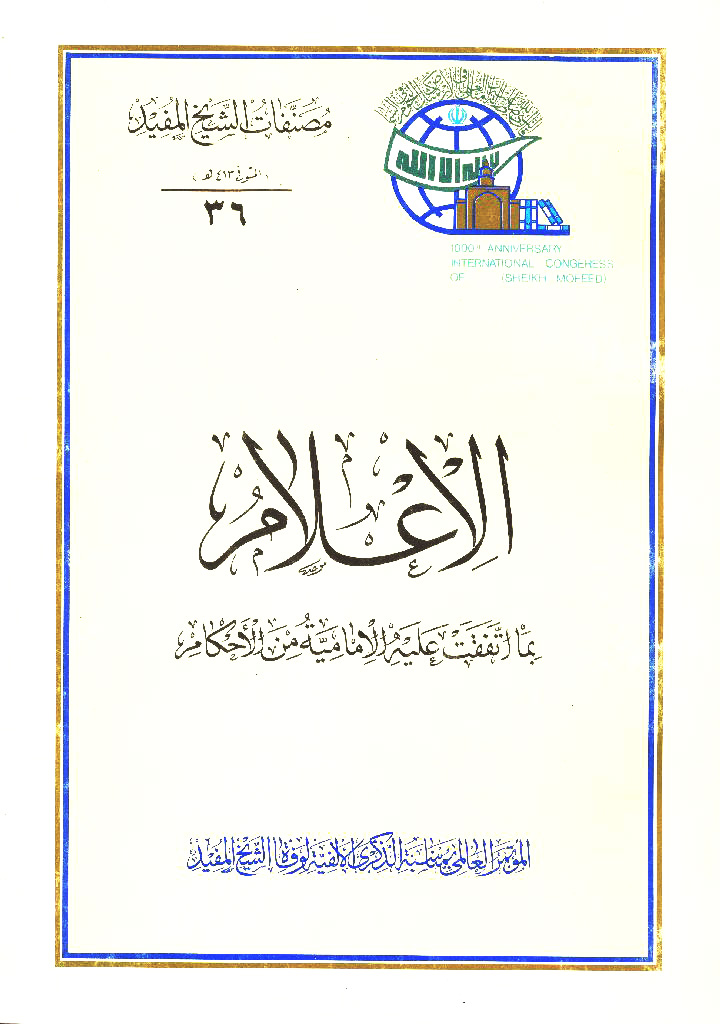 مُصَنَّفَاتُ الشَّيْخِ المُفِيدِ
(المتوفى ٤١٣ هـ)
٣٦
لا إله إلا الله
1000th ANNIVERSARY
INTERNATIONAL CONGERESS
OF (SHEIKH MOFEED)
الإعلام
بِمَا اتَّفَقَتْ عَلَيْهِ الإِمَامِيَّةُ مِنَ الأَحْكَامِ
المؤتمر العالمي بمناسبة الذكرى الألفية لوفاة الشيخ المفيد